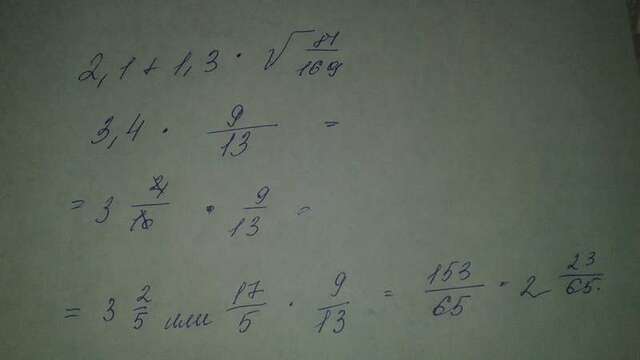 2,1 + 1,3 · √81/169
3,4 · 9/13 =
= 3 4/10 · 9/13 =
= 3 2/5 или 17/5 · 9/13 = 153/65 = 2 23/65.